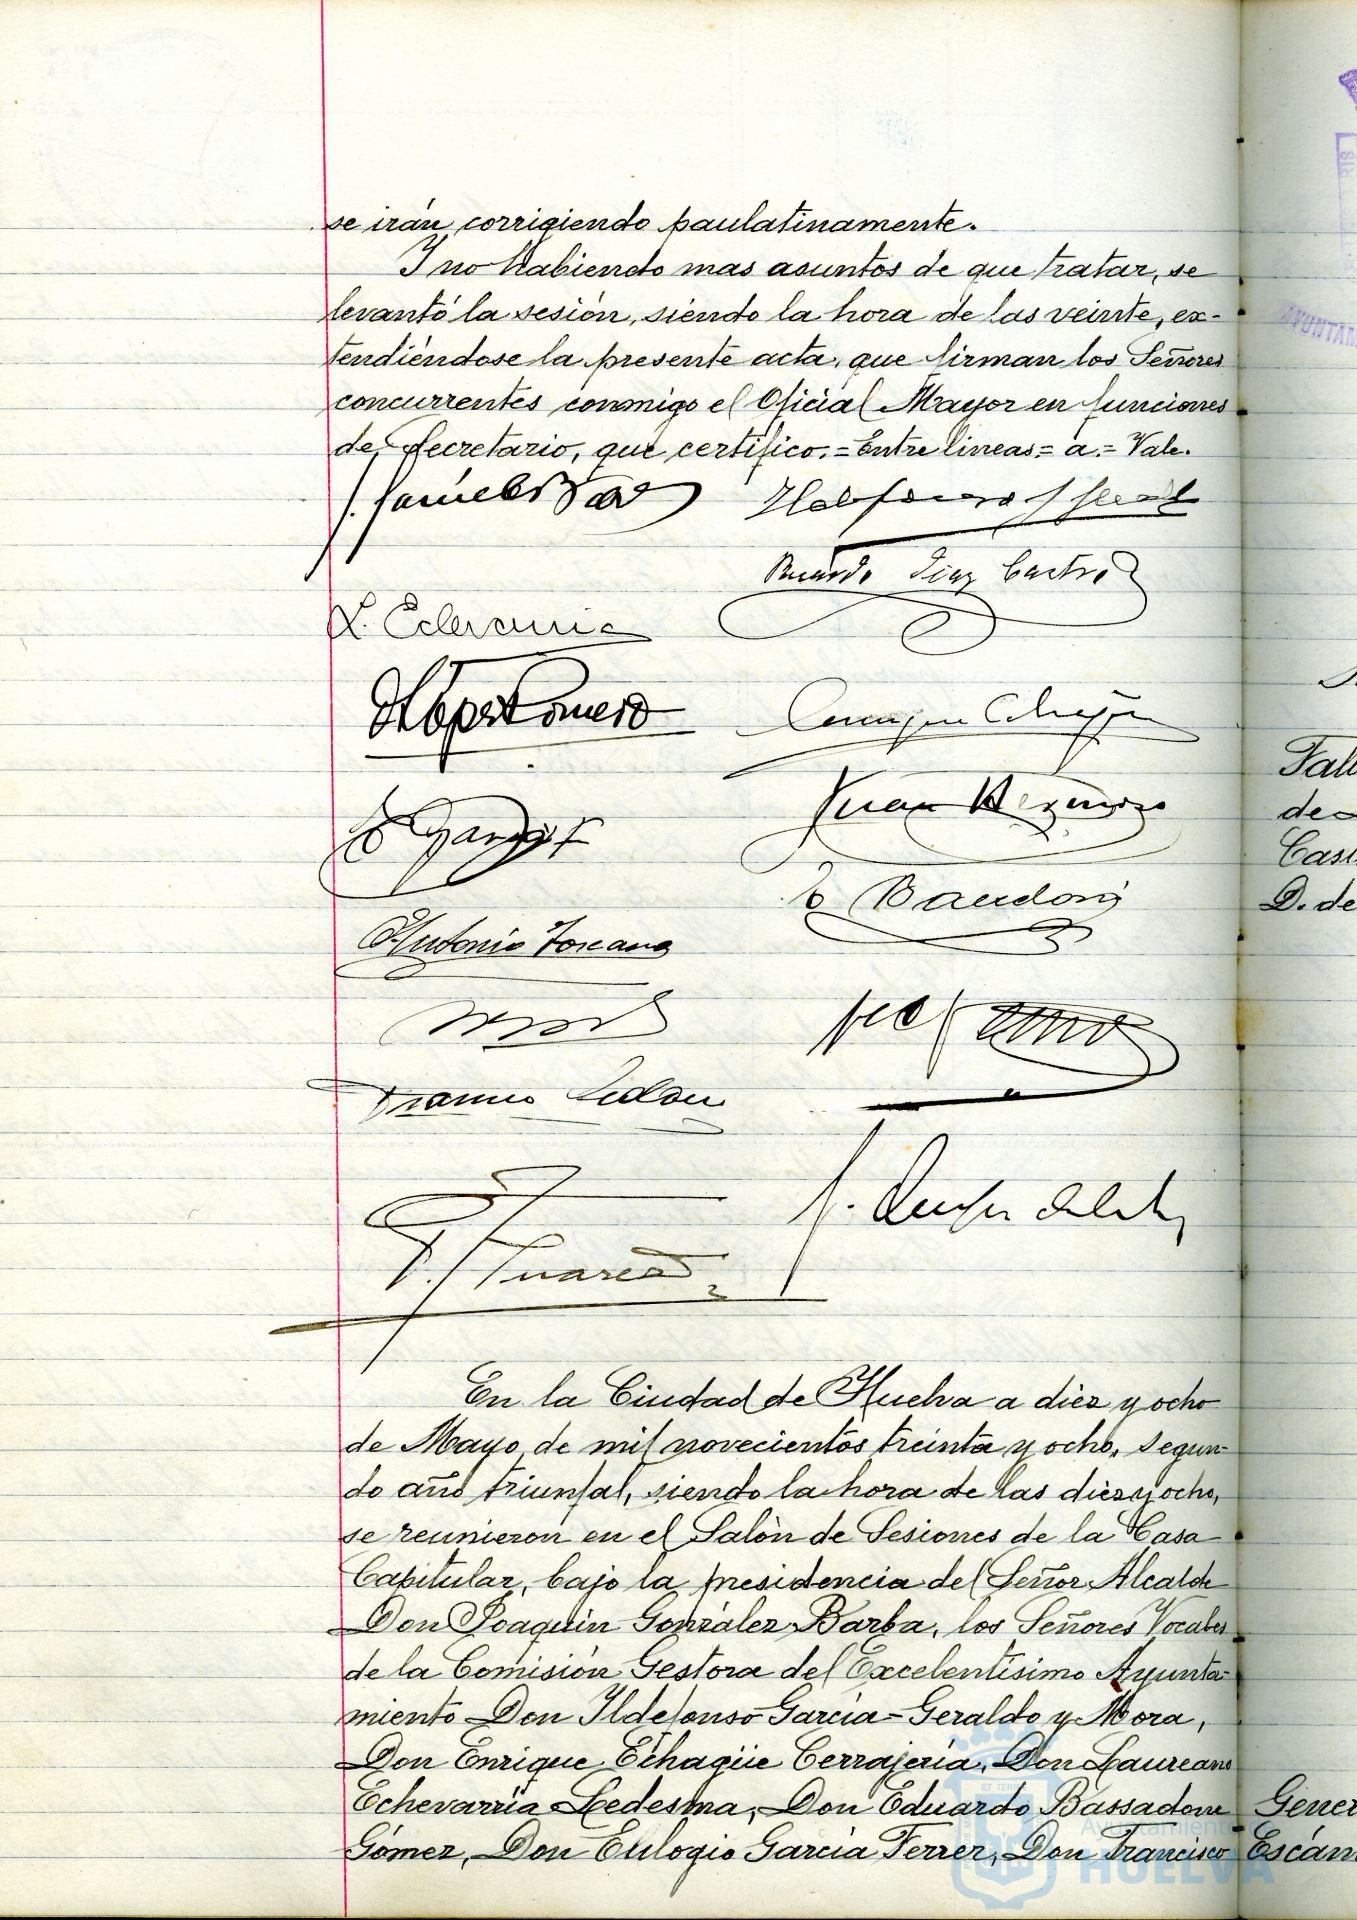 se irán corrigiendo paulatinamente.
Y no habiendo mas asuntos de que tratar, se
levantó la sesión, siendo la hora de las veinte, ex-
tendiéndose la presente acta, que firman los Señores
concurrentes conmigo el Oficial Mayor en funciones
de Secretario, que certifico. = Entre lineas = a = Vale.
Ricardo Diaz Castro
L. Echevarria
Juan
E Bassadone
Antonio Toscano
Suarez
En la Ciudad de Huelva a diez y ocho
de Mayo de mil novecientos treinta y ocho, Segun-
do año triunfal, siendo la hora de las diez y ocho,
se reunieron en el Salón de Sesiones de la Casa
Capitular, bajo la presidencia del Señor Alcalde
Don Joaquin González Barba, los Señores Vocales
de la Comisión Gestora del Excelentísimo Ayunta-
miento Don Ildefonso Garcia-Geraldo y Mora,
Don Enrique Echagüe Cerrajería, Don Laureano
Echevarría Ledesma, Don Eduardo Bassadone
Gómez, Don Eulogio Garcia Ferrer, Don Francisco
Ayuntamiento de
HUELVA
AYUNTAM
Fall
de
Cast
D. de
Gener
Escám